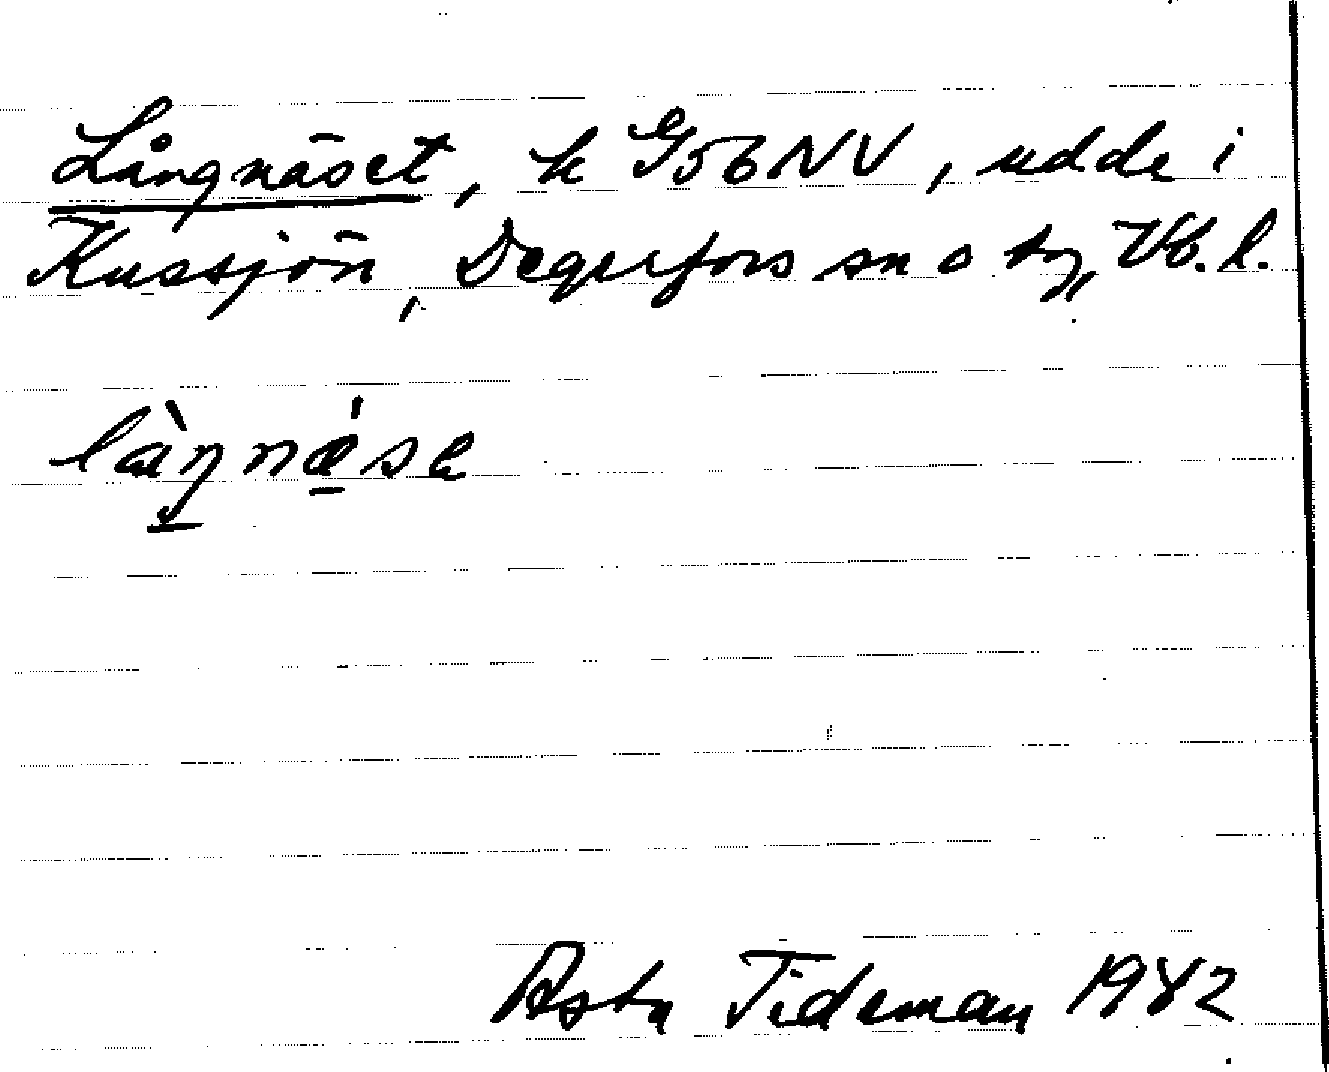 Långnäset, k G56NV, udde i
Kussjön, Degerfors sn o by, Vb. l.
làŋnǽsa
Asta Tideman 1942